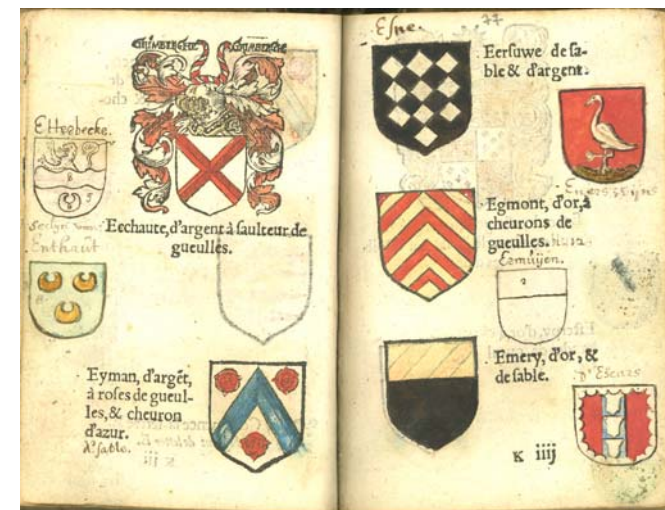 GRIMBERGHE GRIMBERGHE
Etterbeke.
Eechaute, d'argent à saulteur de
gueulles.
Enthaut
Eyman, d'argẽt,
à roses de gueul-
les, & cheuron
d'azur.
d'sable.
K iij
Esne. 77
Eersuwe de sa-
ble & d'argent.
Egmont, d'or, à
cheurons de
gueulles.
Esmuijen.
Emery, d'or, &
de sable.
D'Escars
K iiij